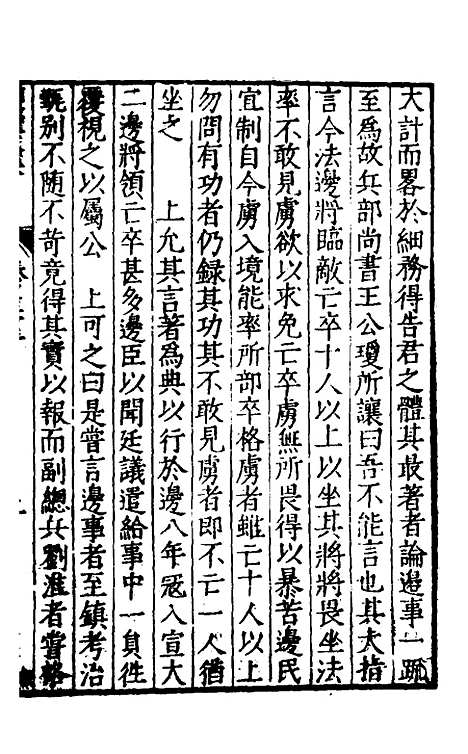 大計而畧於細務得告君之體其最著者論邉事一疏
至爲故兵部尚書王公瓊所讓曰吾不能言也其大指
言今法邊將臨敵亡卒十人以上以坐其將將畏坐法
率不敢見虜欲以求免亡卒虜無所畏得以暴苦邊民
宜制自今虜入境能率所部卒格虜者雖亡十人以上
勿問有功者仍録其功其不敢見虜者即不亡一人猶
坐之　上允其言著爲典以行於邊八年冦入宣大
二邊將領亡卒甚多邊臣以聞廷議遣給事中一貟徃
覆視之以屬公　上可之曰是嘗言邊事者至鎮考治
甄别不随不苛竟得其實以報而副總兵劉淮者嘗